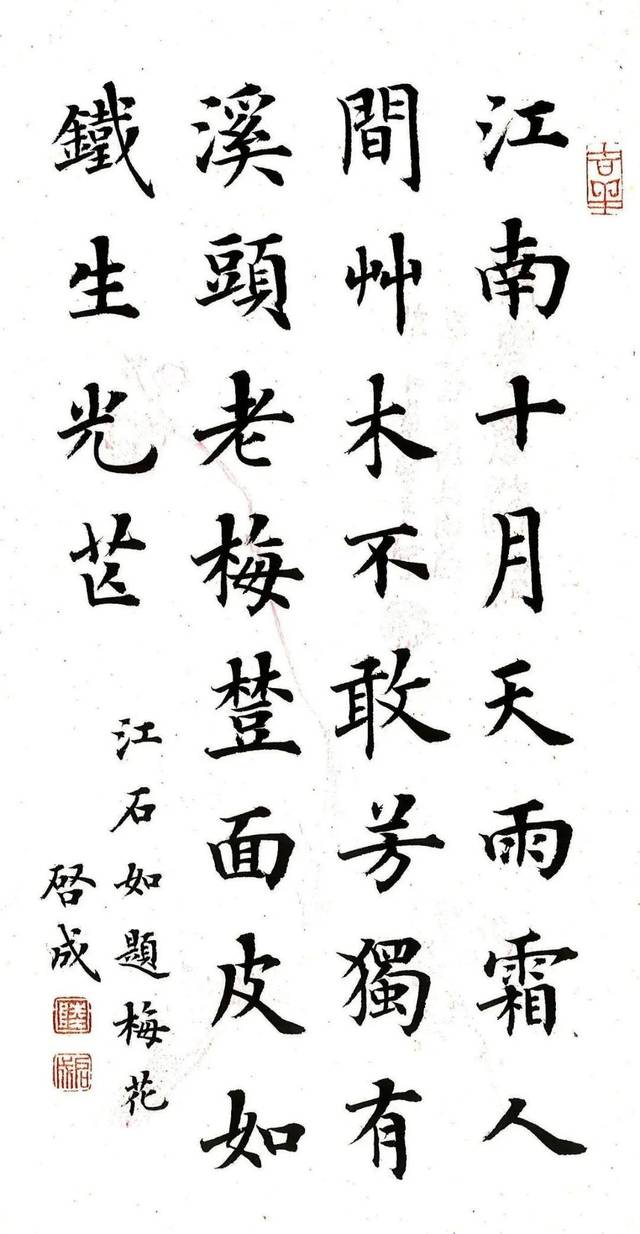 江南十月天雨霜人
間艸木不敢芳獨有
溪頭老梅樹面皮如
鐵生光芒
江石如題梅花
啓成